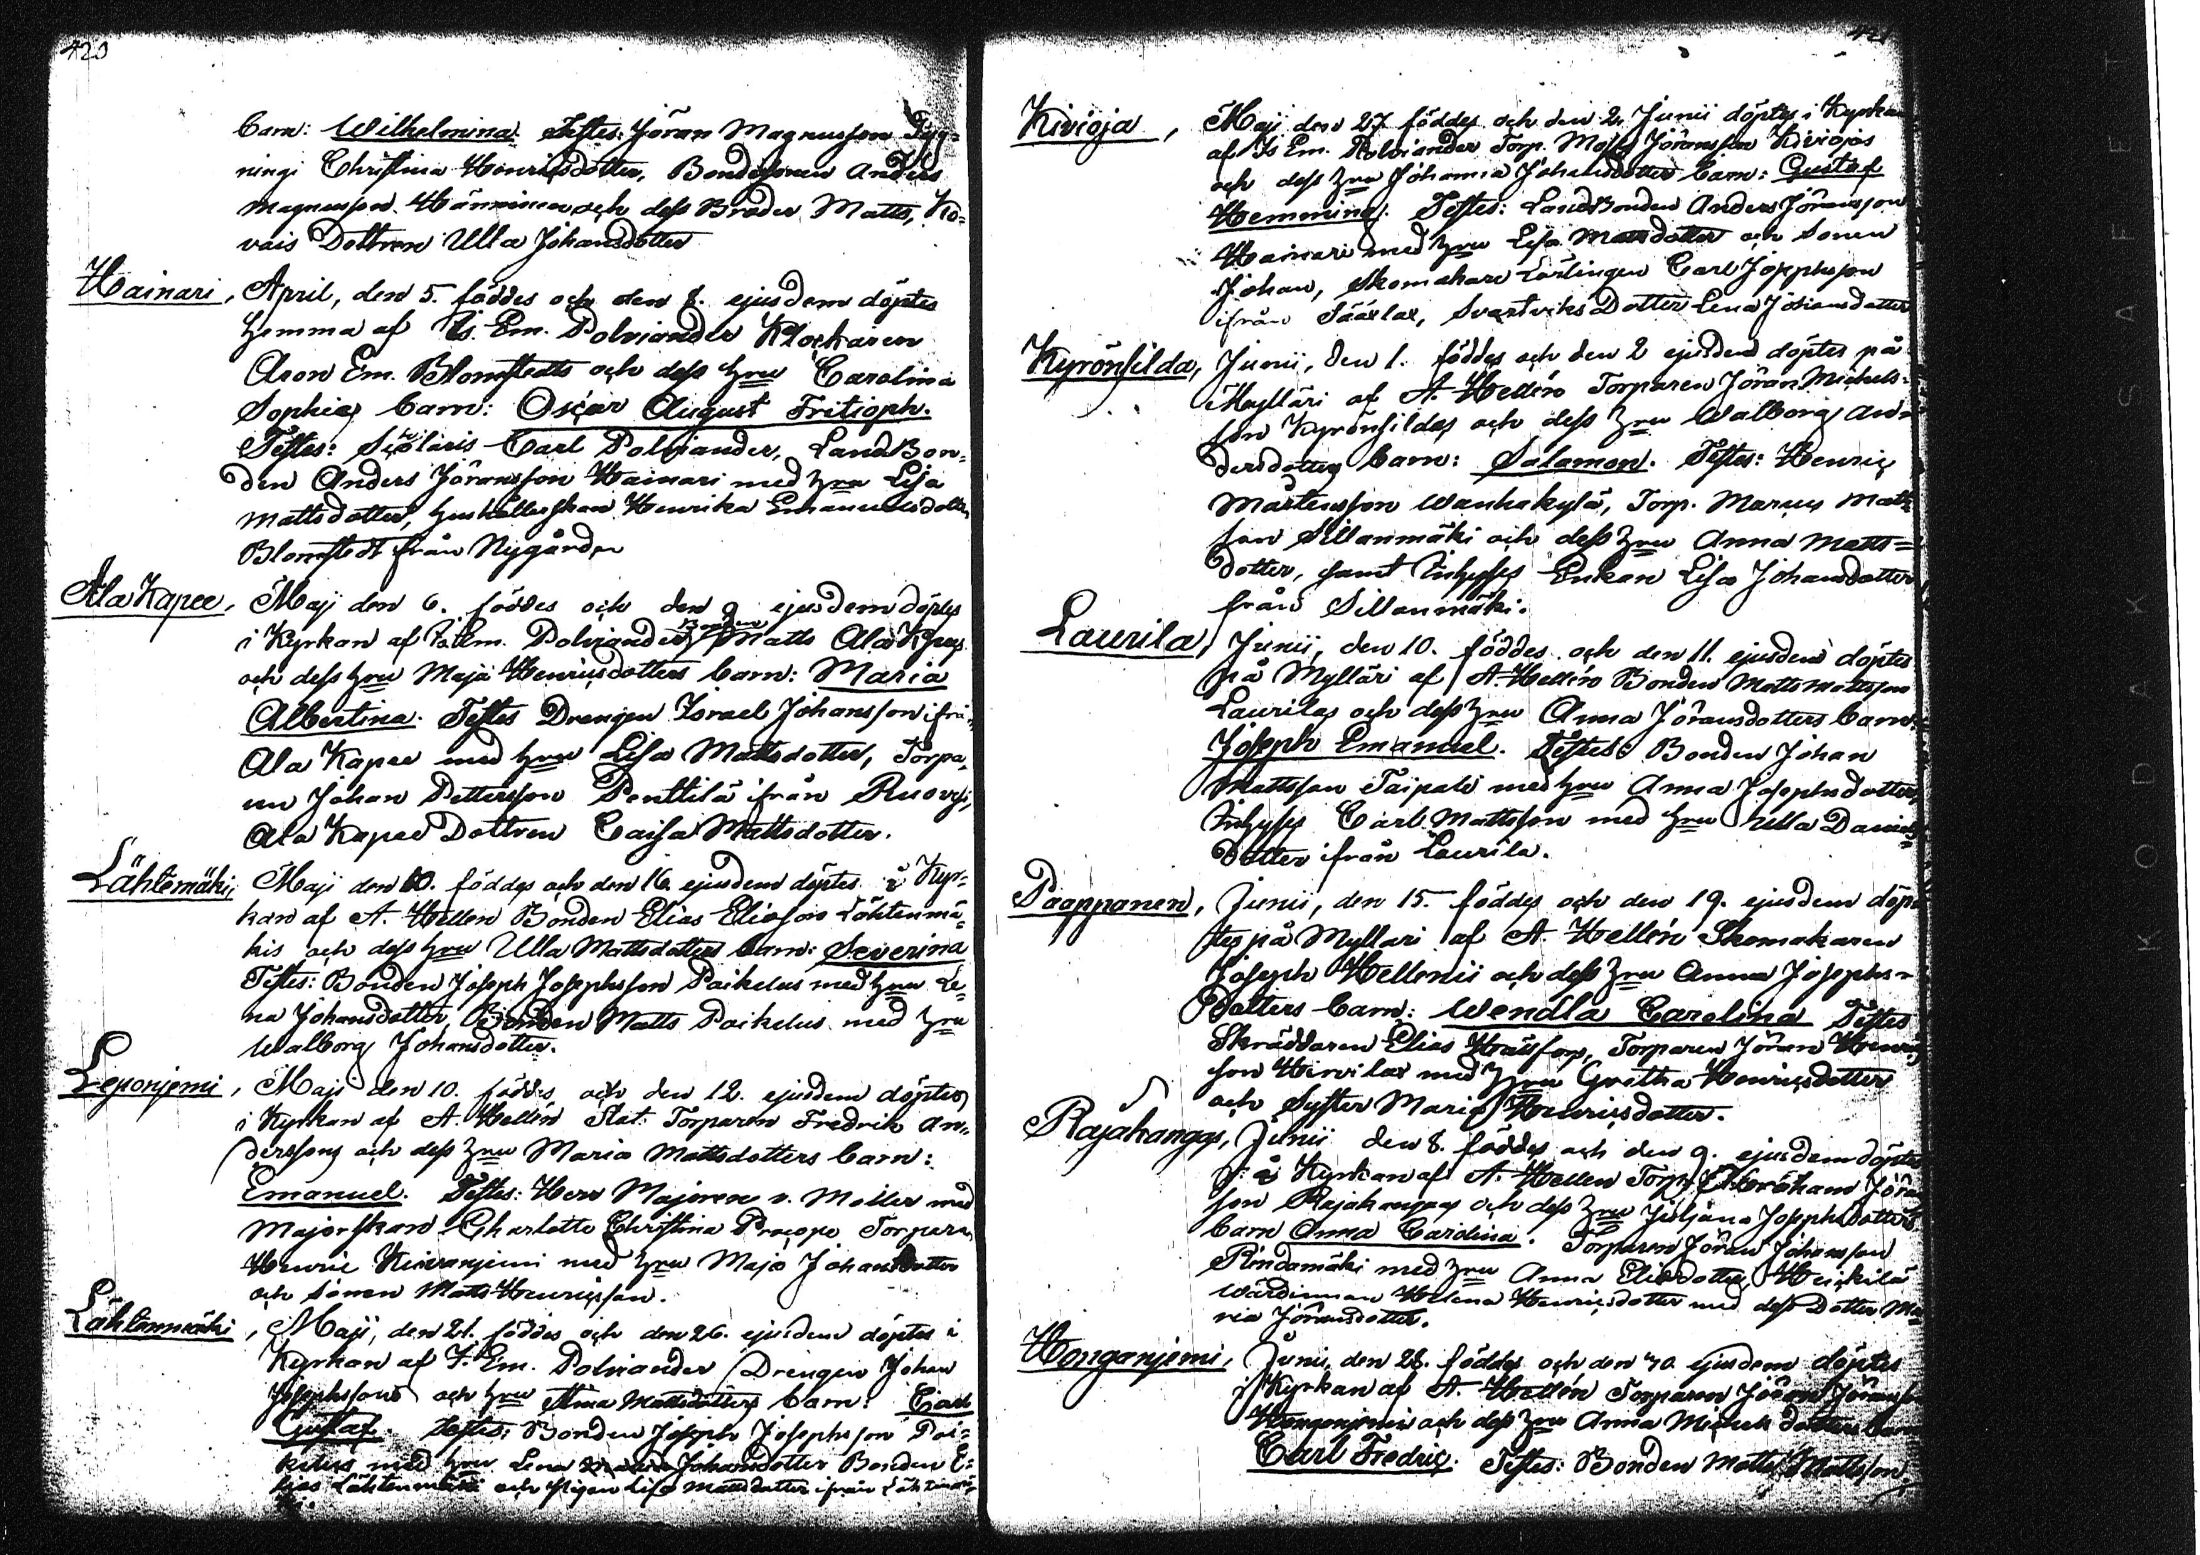 420
barn: Wilhelmina. Testes: Jöran Magnusson Pyg-
ningi Christina Henricsdotter, Bondesonen Anders
Magnusson Hänninen och dess Broder Matts, Ko-
vais Dottren Ulla Johansdotter
Hainari, April, den 5. föddes och den 8. ejusdem döptes
hemma af Is. Em. Polviander Klockaren
Aron Em. Blomstedts och dess hru Carolina
Sophias barn: Oscar August Fritioph.
Testes: Scolaris Carl Polviander, LandBon-
den Anders Jöransson Hainari med hru Lisa
Mattsdotter, hushållerskan Henrika Emanuelsdotter
Blomstedt från Nygården
Ala Kapee, Maji den 6. föddes och den 9 ejusdem döptes
i Kyrkan af Is Em. Polviander Bonden Matts Ala Kapees
och dess hru Maja Henricsdotters barn: Maria
Albertina. Testes Drengen Israel Johansson ifrån
Ala Kapee med hru Lisa Mattsdotter, Torpa-
ren Johan Pettersson Penttilä ifrån Ruovesi,
Ala Kapee Dottren Caisa Mattsdotter.
Lähtemäki, Maji den 10. föddes och den 16. ejusdem döptes i Kyr-
kan af A. Hellen Bonden Elias Eliasson Lähtenmä-
kis och dess hru Ulla Mattsdotters barn: Severina
Testes: Bonden Joseph Josephsson Paikelus med hru Le-
na Johansdotter, Bonden Matts Paikelus med hru
Walborg Johansdotter.
Leponjemi, Maji den 10. föddes och den 12. ejusdem döptes
i Kyrkan af A. Hellén Stat. Torparen Fredrik An-
derssons och dess hru Maria Mattsdotters barn:
Emanuel. Testes: Herr Majoren v. Möller med
Majorskan Charlotte Christina Procope Torparen
Henric Kiviranjemi med hru Maja Johansdotter
och Sonen Matts Henricsson.
Lähtenmäki, Maji, den 21. föddes och den 26. ejusdem döptes i
Kyrkan af I. Em. Polviander Drengen Johan
Josephssons och hru Stina Mattsdotters barn: Carl
Gustaf. Testes: Bonden Joseph Josephsson Pai-
kelus med hru Lena Johansdotter Bonden E-
lias Lähtenmäki och Pigan Lisa Mattsdotter ifrån Lähtenmä-
ki.
421
Kivioja, Maji den 27 föddes och den 2. Junii döptes i Kyrkan
af Is Em. Polviander Torp. Matts Jöransson Kiviojas
och dess hru Johanna Johansdotters barn: Gustaf
Hemming. Testes: Landbonden Anders Jöransson
Hainari med hru Lisa Mattsdotter och Sonen
Johan, Skomakare Lärlingen Carl Josephsson
ifrån Säärlax, Svartviks Dotter Lena Johansdotter
Kyrönsilda, Junii, den 1. föddes och den 2 ejusdem döptes på
Mylläri af A. Hellén Torparen Jöran Michels-
son Kyrönsildas och dess hru Walborg An-
dersdotters barn: Salamon. Testes: Henric
Mårtensson Wanhakylä, Torp. Marcus Matts-
son Sillanmäki och dess hru Anna Matts-
dotter, samt Inhyses Enkan Lisa Johansdotter
från Sillanmäki.
Laurila, Junii, den 10. föddes och den 11. ejusdem döptes
på Mylläri af A. Hellén Bonden Matts Mattsson
Laurilas och dess hru Anna Jöransdotters barn:
Joseph Emanuel. Testes: Bonden Johan
Mattsson Taipale med hru Anna Josephsdotter,
Inhyses Carl Mattsson med hru Ulla Daniels-
Dotter ifrån Laurila.
Paapponen, Junii, den 15. föddes och den 19. ejusdem döp-
tes på Mylläri af A. Hellén Skomakaren
Joseph Hellenii och dess hru Anna Josephs-
Dotters barn: Wendla Carolina Testes
Skräddaren Elias Hansson, Torparen Jöran Henric-
son Hirvilax med hru Gretha Henricsdotter
och Syster Maria Henricsdotter.
Rajakangas, Junii den 8. föddes och den 9. ejusdem döptes
i Kyrkan af A. Hellen Torp. Abraham Jöran-
son Rajakangas och dess hru Juljana Josephsdotters
barn Anna Carolina. Torparen Jöran Johansson
Rindamäki med hru Anna Eliasdotter, Heickilä
Wärdinnan Helena Henricsdotter med dess Dotter Ma-
ria Jöransdotter.
Honganjemi, Junii, den 28. föddes och den 30. ejusdem döptes
i Kyrkan af A. Hellén Torparen Jöran Jöransson
Honganjemi och dess hru Anna Michelsdotters barn
Carl Fredric. Testes: Bonden Matts Mattsson.
KODAK SAFET